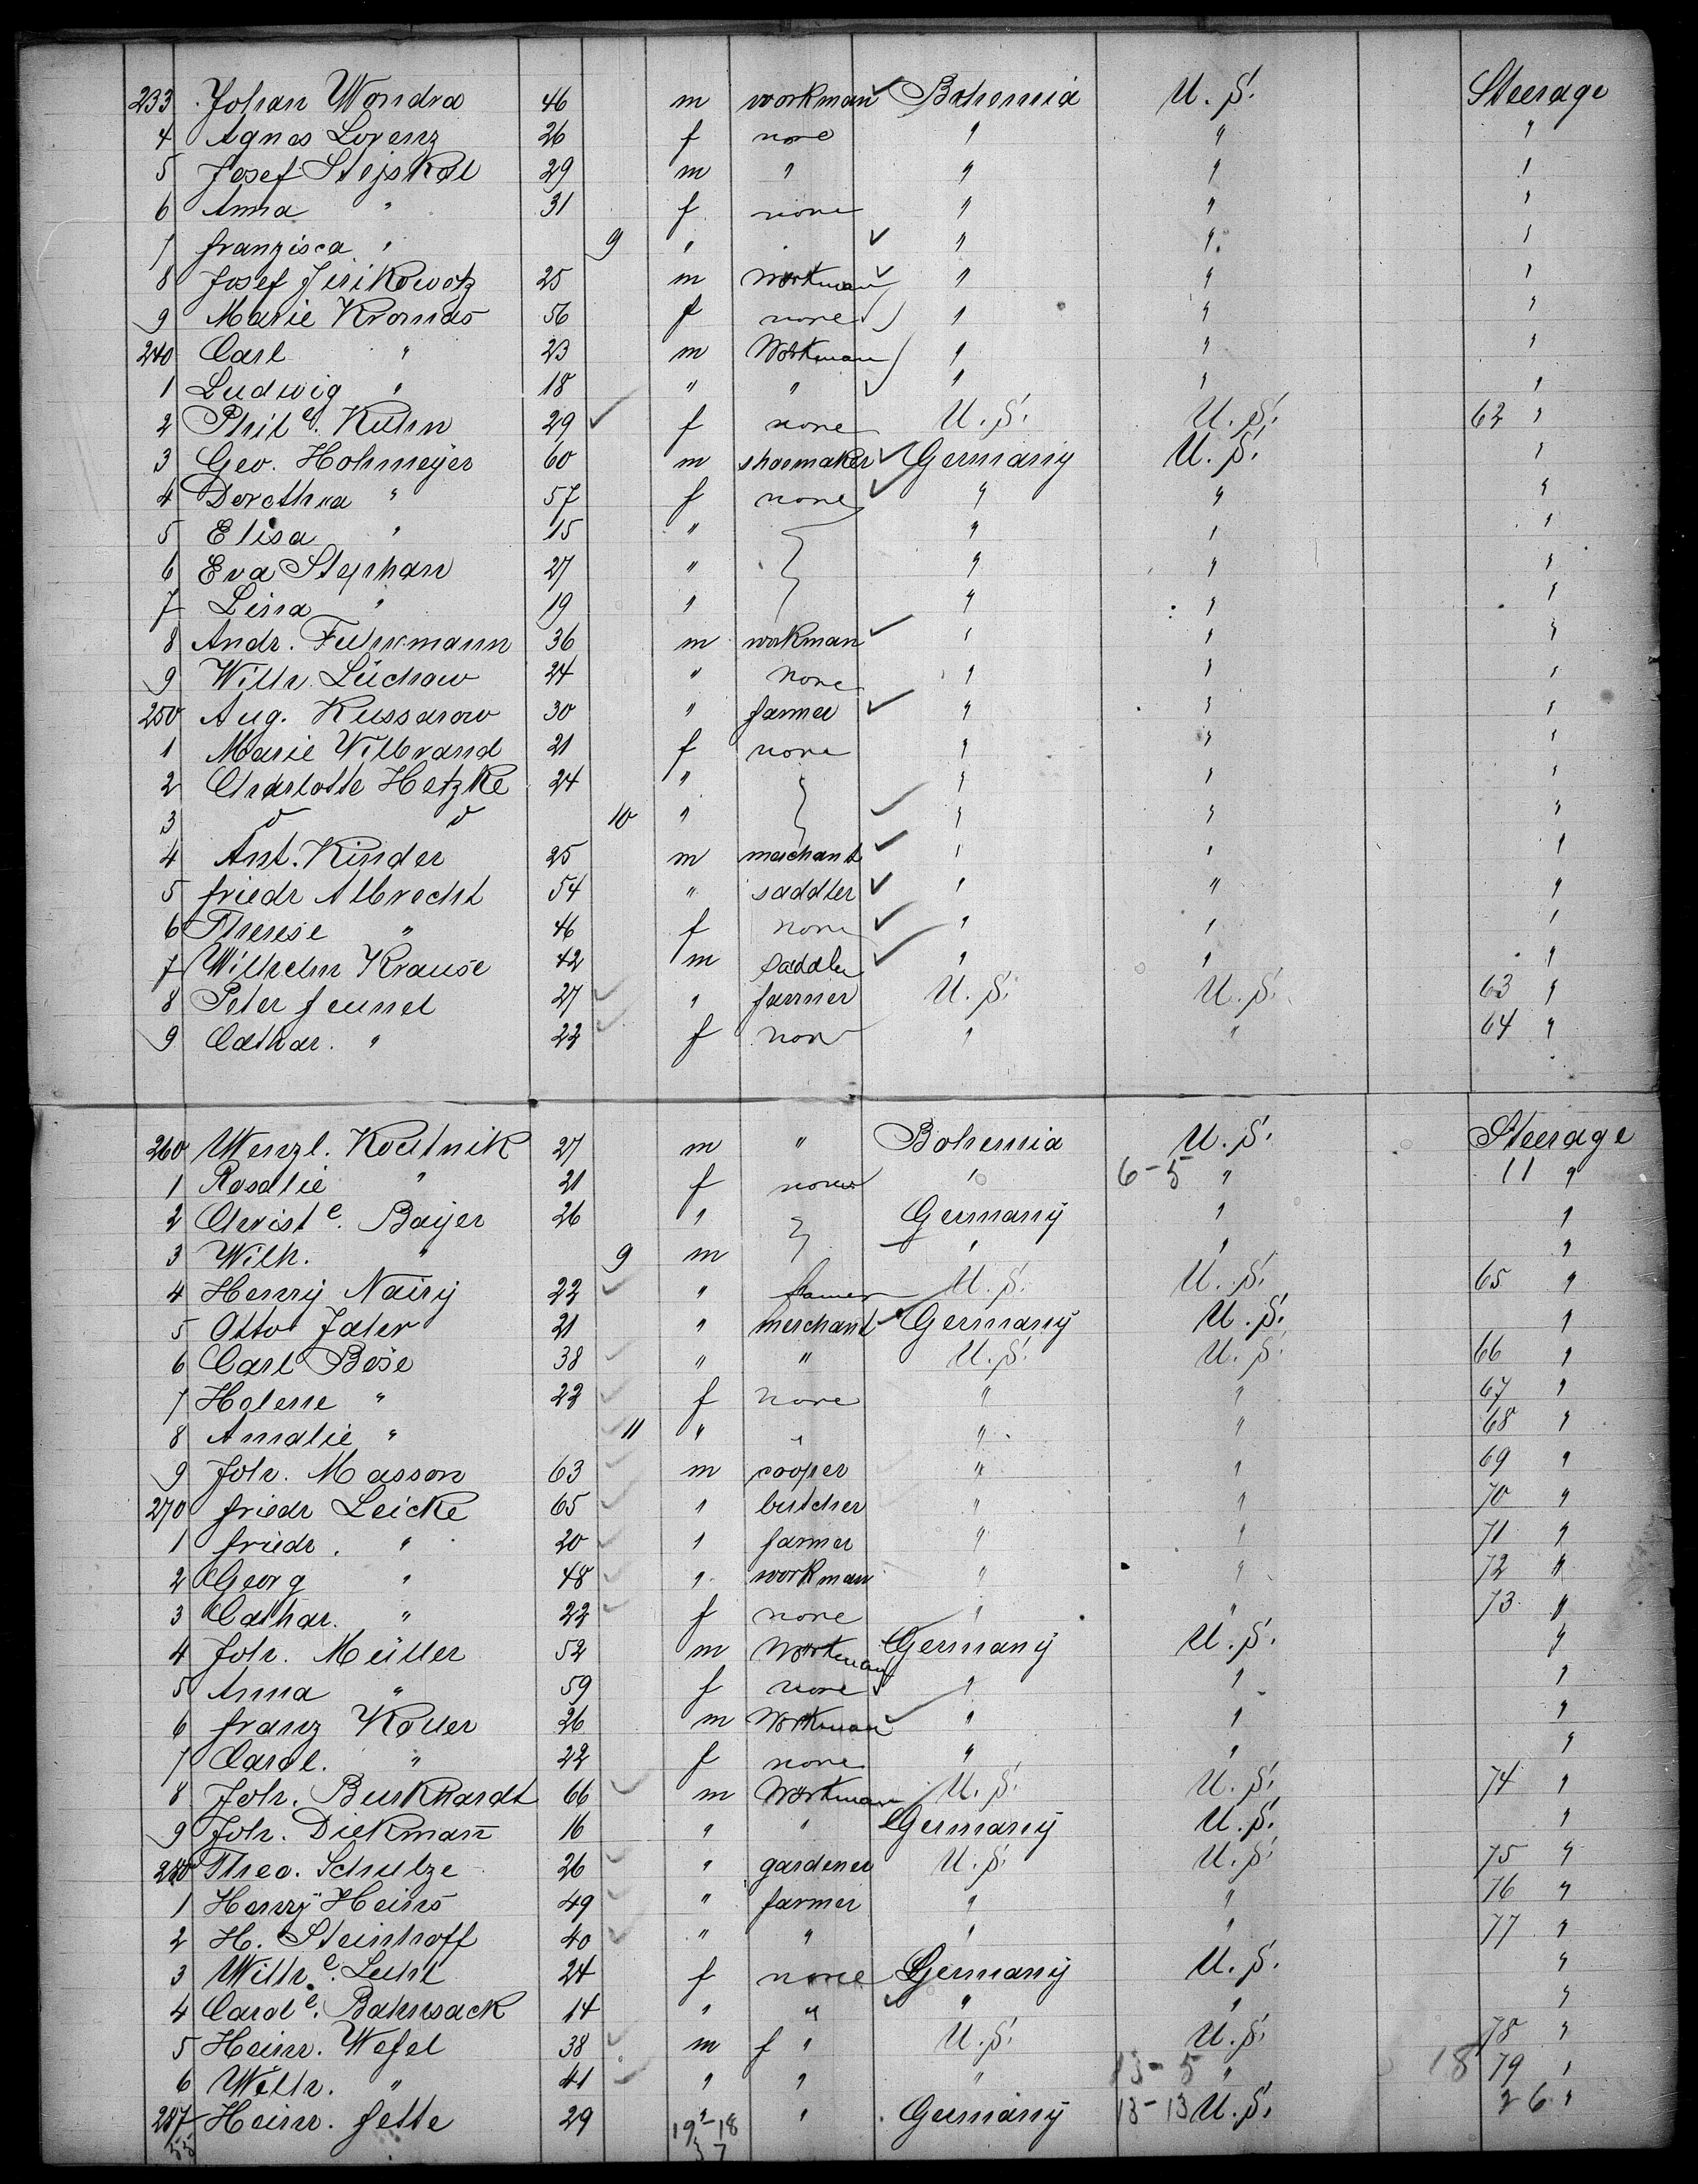 233 Johan Wondra 46 m workman Bohemia U. S. Steerage
4 Agnes Lorenz 26 f none " " "
5 Josef Stejskal 29 m " " " "
6 Anna " 31 f none " " "
7 Franzisca " 9 " " " "
8 Josef Jirikowotz 25 m Workman " " "
9 Marie Kromas 56 f none " " "
240 Carl " 23 m Workman " " "
1 Ludwig " 18 " " " " "
2 Phil e. Kuhn 29 f none U. S. U. S. 62 "
3 Geo. Hohmeyer 60 m shoemaker Germany U. S. "
4 Dorothea " 57 f none " " "
5 Elisa " 15 " " " "
6 Eva Stephan 27 " " " "
7 Lina " 19 " " " "
8 Andr. Fuhrmann 36 m workman " " "
9 Wilh. Lüchow 24 " none " " "
250 Aug. Kussarow 30 " farmer " " "
1 Marie Wilbrand 21 f none " " "
2 Charlotte Hetzke 24 " " " "
3 " " 10 " " " "
4 Ant. Kinder 25 m merchant " " "
5 Friedr Albrecht 54 " saddler " " "
6 Therese " 46 f none " " "
7 Wilhelm Krause 42 m Saddler " " "
8 Peter Feunel 27 " farmer U. S. U. S. 63 "
9 Cathar. " 22 f non " " 64 "
260 Wenzl. Koutnik 27 m " Bohemia U. S. Steerage
1 Rosalie " 21 f none " 6-5 " 11 "
2 Christ e. Bayer 26 " Germany " "
3 Wilh. " 9 m " " "
4 Henry Nairy 22 " farmer U. S. U. S. 65 "
5 Otto Jater 21 " merchant Germany U. S. "
6 Carl Bose 38 " " U. S. U. S. 66 "
7 Helene " 22 f none " " 67 "
8 Amalie " 11 " " " " 68 "
9 Joh. Masson 63 m cooper " " 69 "
270 Friedr Leicke 65 " butcher " " 70 "
1 Friedr. " 20 " farmer " " 71 "
2 Georg " 48 " workman " " 72 "
3 Cathar. " 22 f none " " 73 "
4 Joh. Müller 52 m Workman Germany U. S. "
5 Anna " 59 f none " " "
6 Franz Koller 26 m Workman " " "
7 Carol. " 22 f none " " "
8 Joh. Burkhardt 66 m Workman U. S. U. S. 74 "
9 Joh. Diekmann 16 " " Germany U. S. "
280 Theo. Schulze 26 " gardener U. S. U. S. 75 "
1 Henry Heins 49 " farmer " " 76 "
2 H. Steinhoff 40 " " " " 77 "
3 Wilh e. Lucht 24 f none Germany U. S. "
4 Carol e. Bahnsack 14 " " " " "
5 Heinr. Wefel 38 m f " U. S. U. S. 78 "
6 Wilh. " 41 " " " 13-5 " 18 79 "
287 Heinr. Fette 29 " " Germany 13-13 U. S. 26 "
55 19-18
37